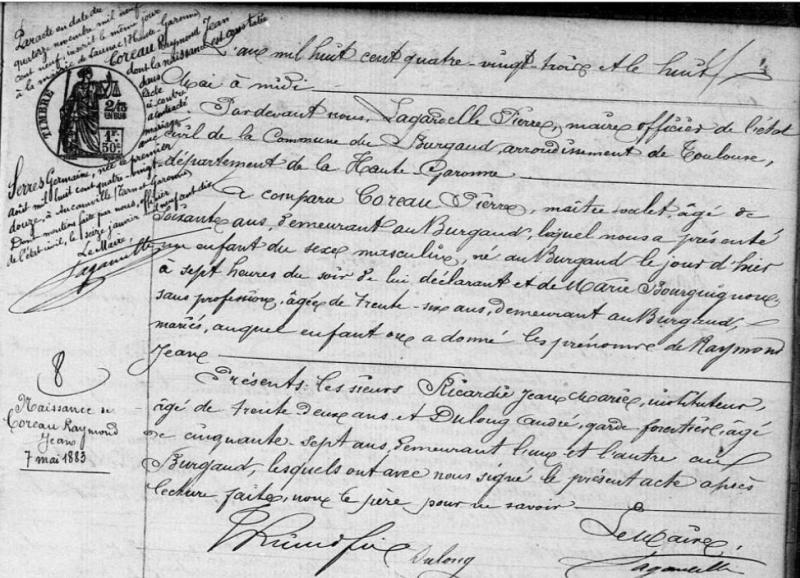 Par acte en date du
quatorze novembre mil neuf
cent neuf inscrit le même jour
à la mairie de Launac (Haute Garonne)
Coreau Raymond Jean
dont la naissance est constatée
dans
l'acte
ci-contre
a contracté
mariage
avec
Serres Germaine, née le premier
août mil huit cent quatre-vingt
douze, à
Dont mention faite par nous, officier
de l'état civil, le seize janvier
Le Maire,
TIMBRE
2/10
EN SUS
1F
50c
8
Naissance de
Coreau Raymond
Jean
7 mai 1883
L'an mil huit cent quatre-vingt trois et le huit
Mai à midi
Pardevant nous, Lagarselle Pierre, maire officier de l'état
civil de la Commune du Burgaud, arrondissement de Toulouse,
département de la Haute Garonne
a comparu Coreau Pierre, maître valet, âgé de
soixante ans, demeurant au Burgaud, lequel nous a présenté
un enfant du sexe masculin, né au Burgaud le jour d'hier
à sept heures du soir de lui déclarant et de Marie Bourguignon,
sans profession, âgée de trente-six ans, demeurant au Burgaud,
mariés, auquel enfant on a donné les prénoms de Raymond
Jean
Présents: les sieurs Ricardie Jean Marie, instituteur,
âgé de trente deux ans et Dulong André, garde forestier, âgé
de cinquante-sept ans, demeurant l'un et l'autre au
Burgaud, lesquels ont avec nous signé le présent acte après
lecture faite, non le père pour ne savoir
Le Maire,
Dulong